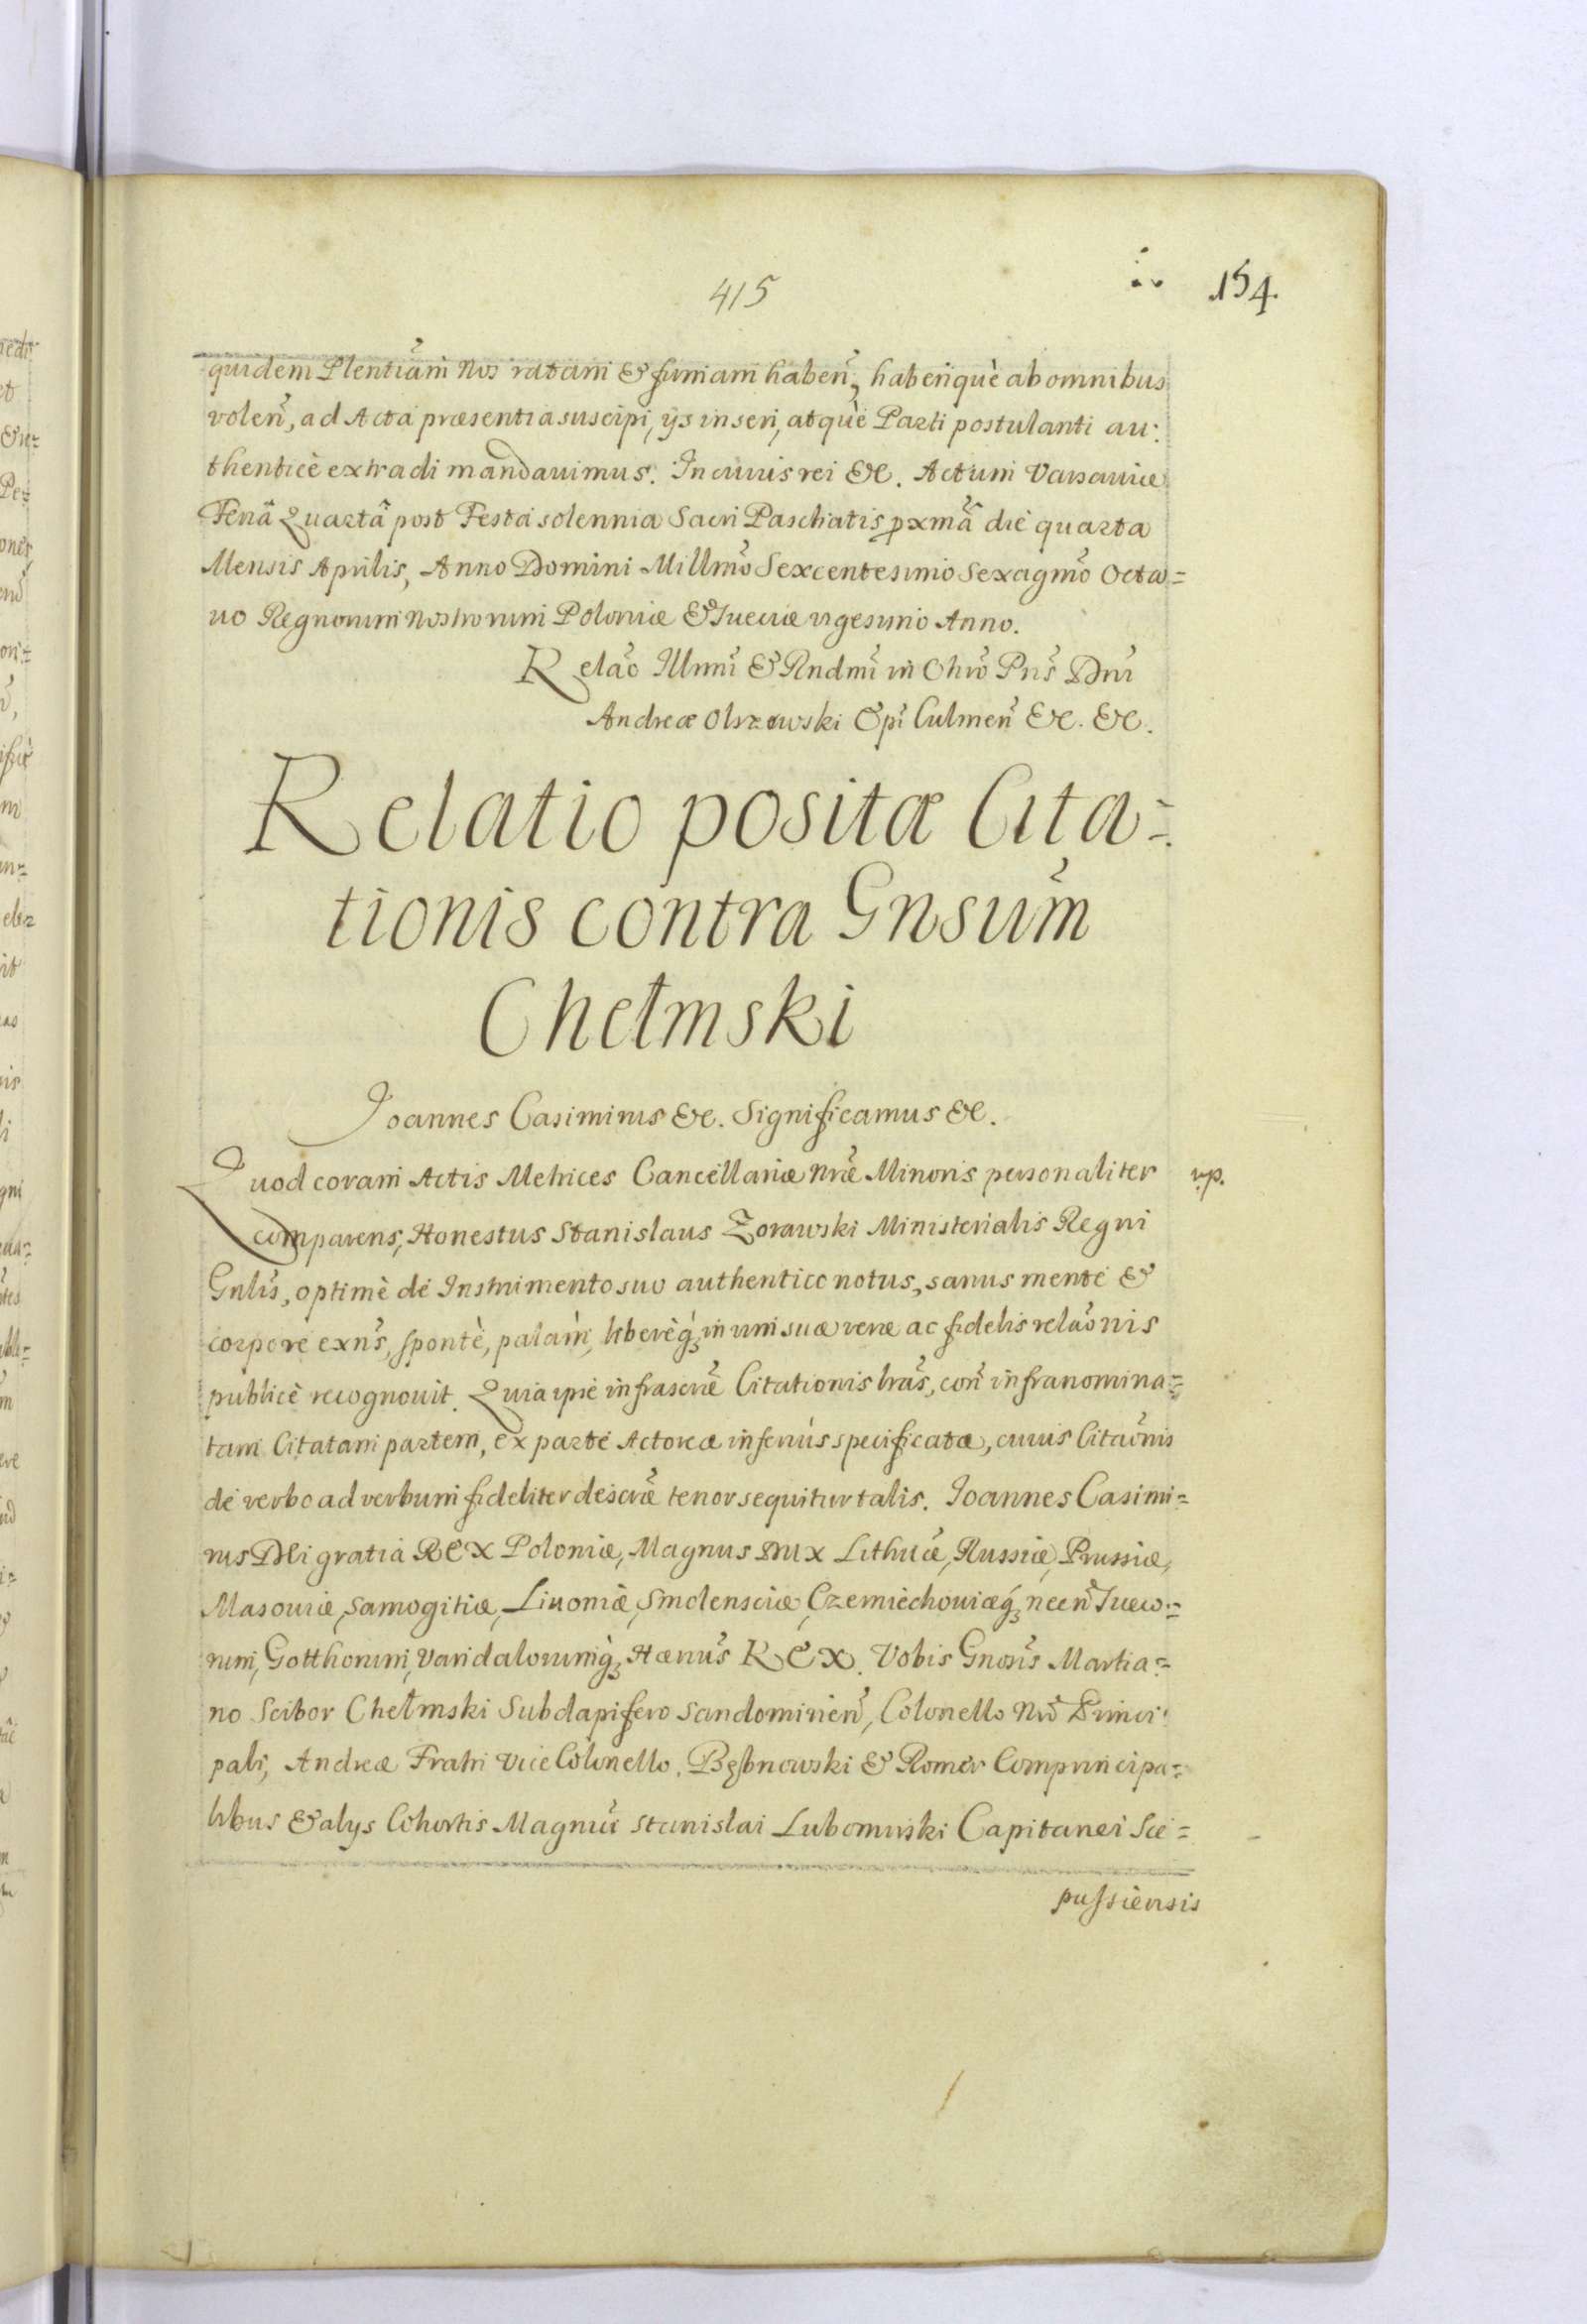 415
154.
quidem Plentiam̃ Nos ratam & firmam haben̄, haberiquè ab omnibus
volen̄, ad Acta præsentia suscipi, ijs inseri, atquè Parti postulanti au:
thenticè extradi mandauimus. In cuius rei &c. Actum Varsauiæ
Feriâ Quartâ post Festa solennia Sacri Paschatis pxmâ die quarta
Mensis Aprilis, Anno Domini Millmõ Sexcentesimo Sexagmõ Octa=
uo Regnorum Nostrorum Poloniæ & Sueciæ vigesimo Anno.
Relaõ Illmi & Rndmi in Chrõ Pris Dni
Andreæ Olszowski Epi Culmen̄ &c. &c.
Relatio positæ Cita=
tionis contra Gnsum̃
Chełmski
Joannes Casimirus &c. Significamus &c.
Quod coram Actis Metrices Cancellariæ nræ Minoris personaliter
comparens, Honestus Stanislaus Zorawski Ministerialis Regni
Gnlis, optimè de Instrumento suo authentico notus, sanus mente &
corpore exns, spontè, palam, liberèq́ꝫ in vim suæ veræ ac fidelis relaõnis
publicè recognouit. Quia ipse infrascrõe Citationis lras, con̄ infranomina=
tam Citatam partem, ex parte Actorea inferiús specificatæ, cuius Citaõnis
de verbo ad verbum fideliter descrõe tenor sequitur talis. Joannes Casimi=
rus DEi gratia REX Poloniæ, Magnus DUX Lithuæ, Russiæ, Prussiæ,
Masouiæ, Samogitiæ, Liuoniæ, Smolensciæ, Czerniechouiæq́ꝫ, necn̄ Sueco=
rum, Gotthorum, Vandalorumq́ꝫ Hærius REX. Vobis Gnosis Martia=
no Scibor Chełmski Subdapifero Sandomirien̄, Colonello nrõ Princi:
pali, Andreæ Fratri Vice Colonello, & Romer Comprincipa=
libus & alys Cohortis Magnifici Stanislai Lubomirski Capitanei Sce=
pussiensis